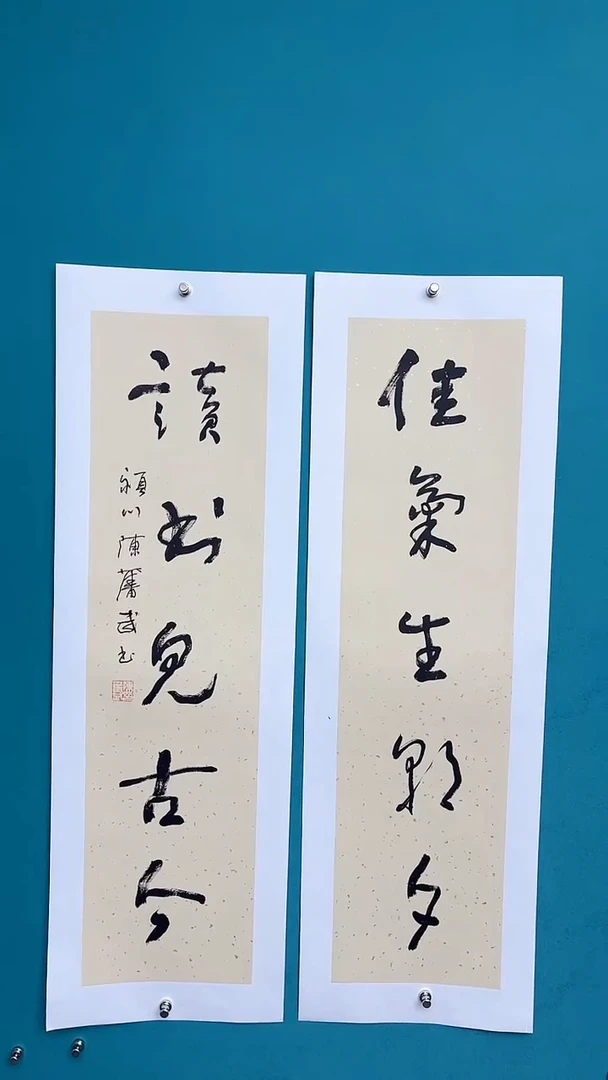 佳氣生朝夕
讀書見古今
潁川陳蕃武書